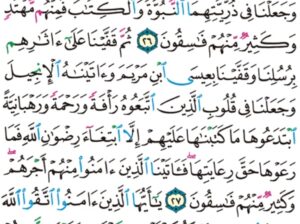 وَجَعَلْنَا فِى ذُرِّيَّتِهِمَا ٱلنُّبُوَّةَ وَٱلْكِتَٰبَ فَمِنْهُم مُّهْتَدٍ
وَكَثِيرٌ مِّنْهُمْ فَٰسِقُونَ ٢٦ ثُمَّ قَفَّيْنَا عَلَىٰٓ ءَاثَٰرِهِم
بِرُسُلِنَا وَقَفَّيْنَا بِعِيسَى ٱبْنِ مَرْيَمَ وَءَاتَيْنَٰهُ ٱلْإِنجِيلَ
وَجَعَلْنَا فِى قُلُوبِ ٱلَّذِينَ ٱتَّبَعُوهُ رَأْفَةً وَرَحْمَةً وَرَهْبَانِيَّةً
ٱبْتَدَعُوهَا مَا كَتَبْنَٰهَا عَلَيْهِمْ إِلَّا ٱبْتِغَآءَ رِضْوَٰنِ ٱللَّهِ فَمَا
رَعَوْهَا حَقَّ رِعَايَتِهَا فَـَٔاتَيْنَا ٱلَّذِينَ ءَامَنُوا۟ مِنْهُمْ أَجْرَهُمْ
وَكَثِيرٌ مِّنْهُمْ فَٰسِقُونَ ٢٧ يَٰٓأَيُّهَا ٱلَّذِينَ ءَامَنُوا۟ ٱتَّقُوا۟ ٱللَّهَ